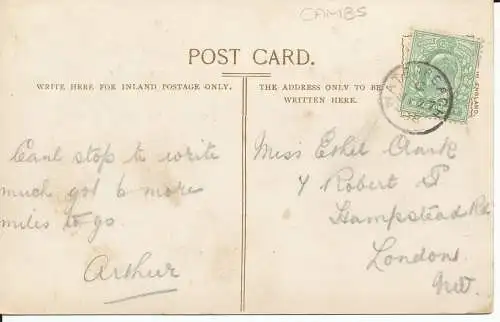 CAMBS
POST CARD.
WRITE HERE FOR INLAND POSTAGE ONLY.
THE ADDRESS ONLY TO BE
WRITTEN HERE.
IN ENGLAND.
Cant stop to write
much got 6 more
miles to go
Arthur
Miss Ethel Clark
7 Robert St
Hampstead Rd
London
NW.